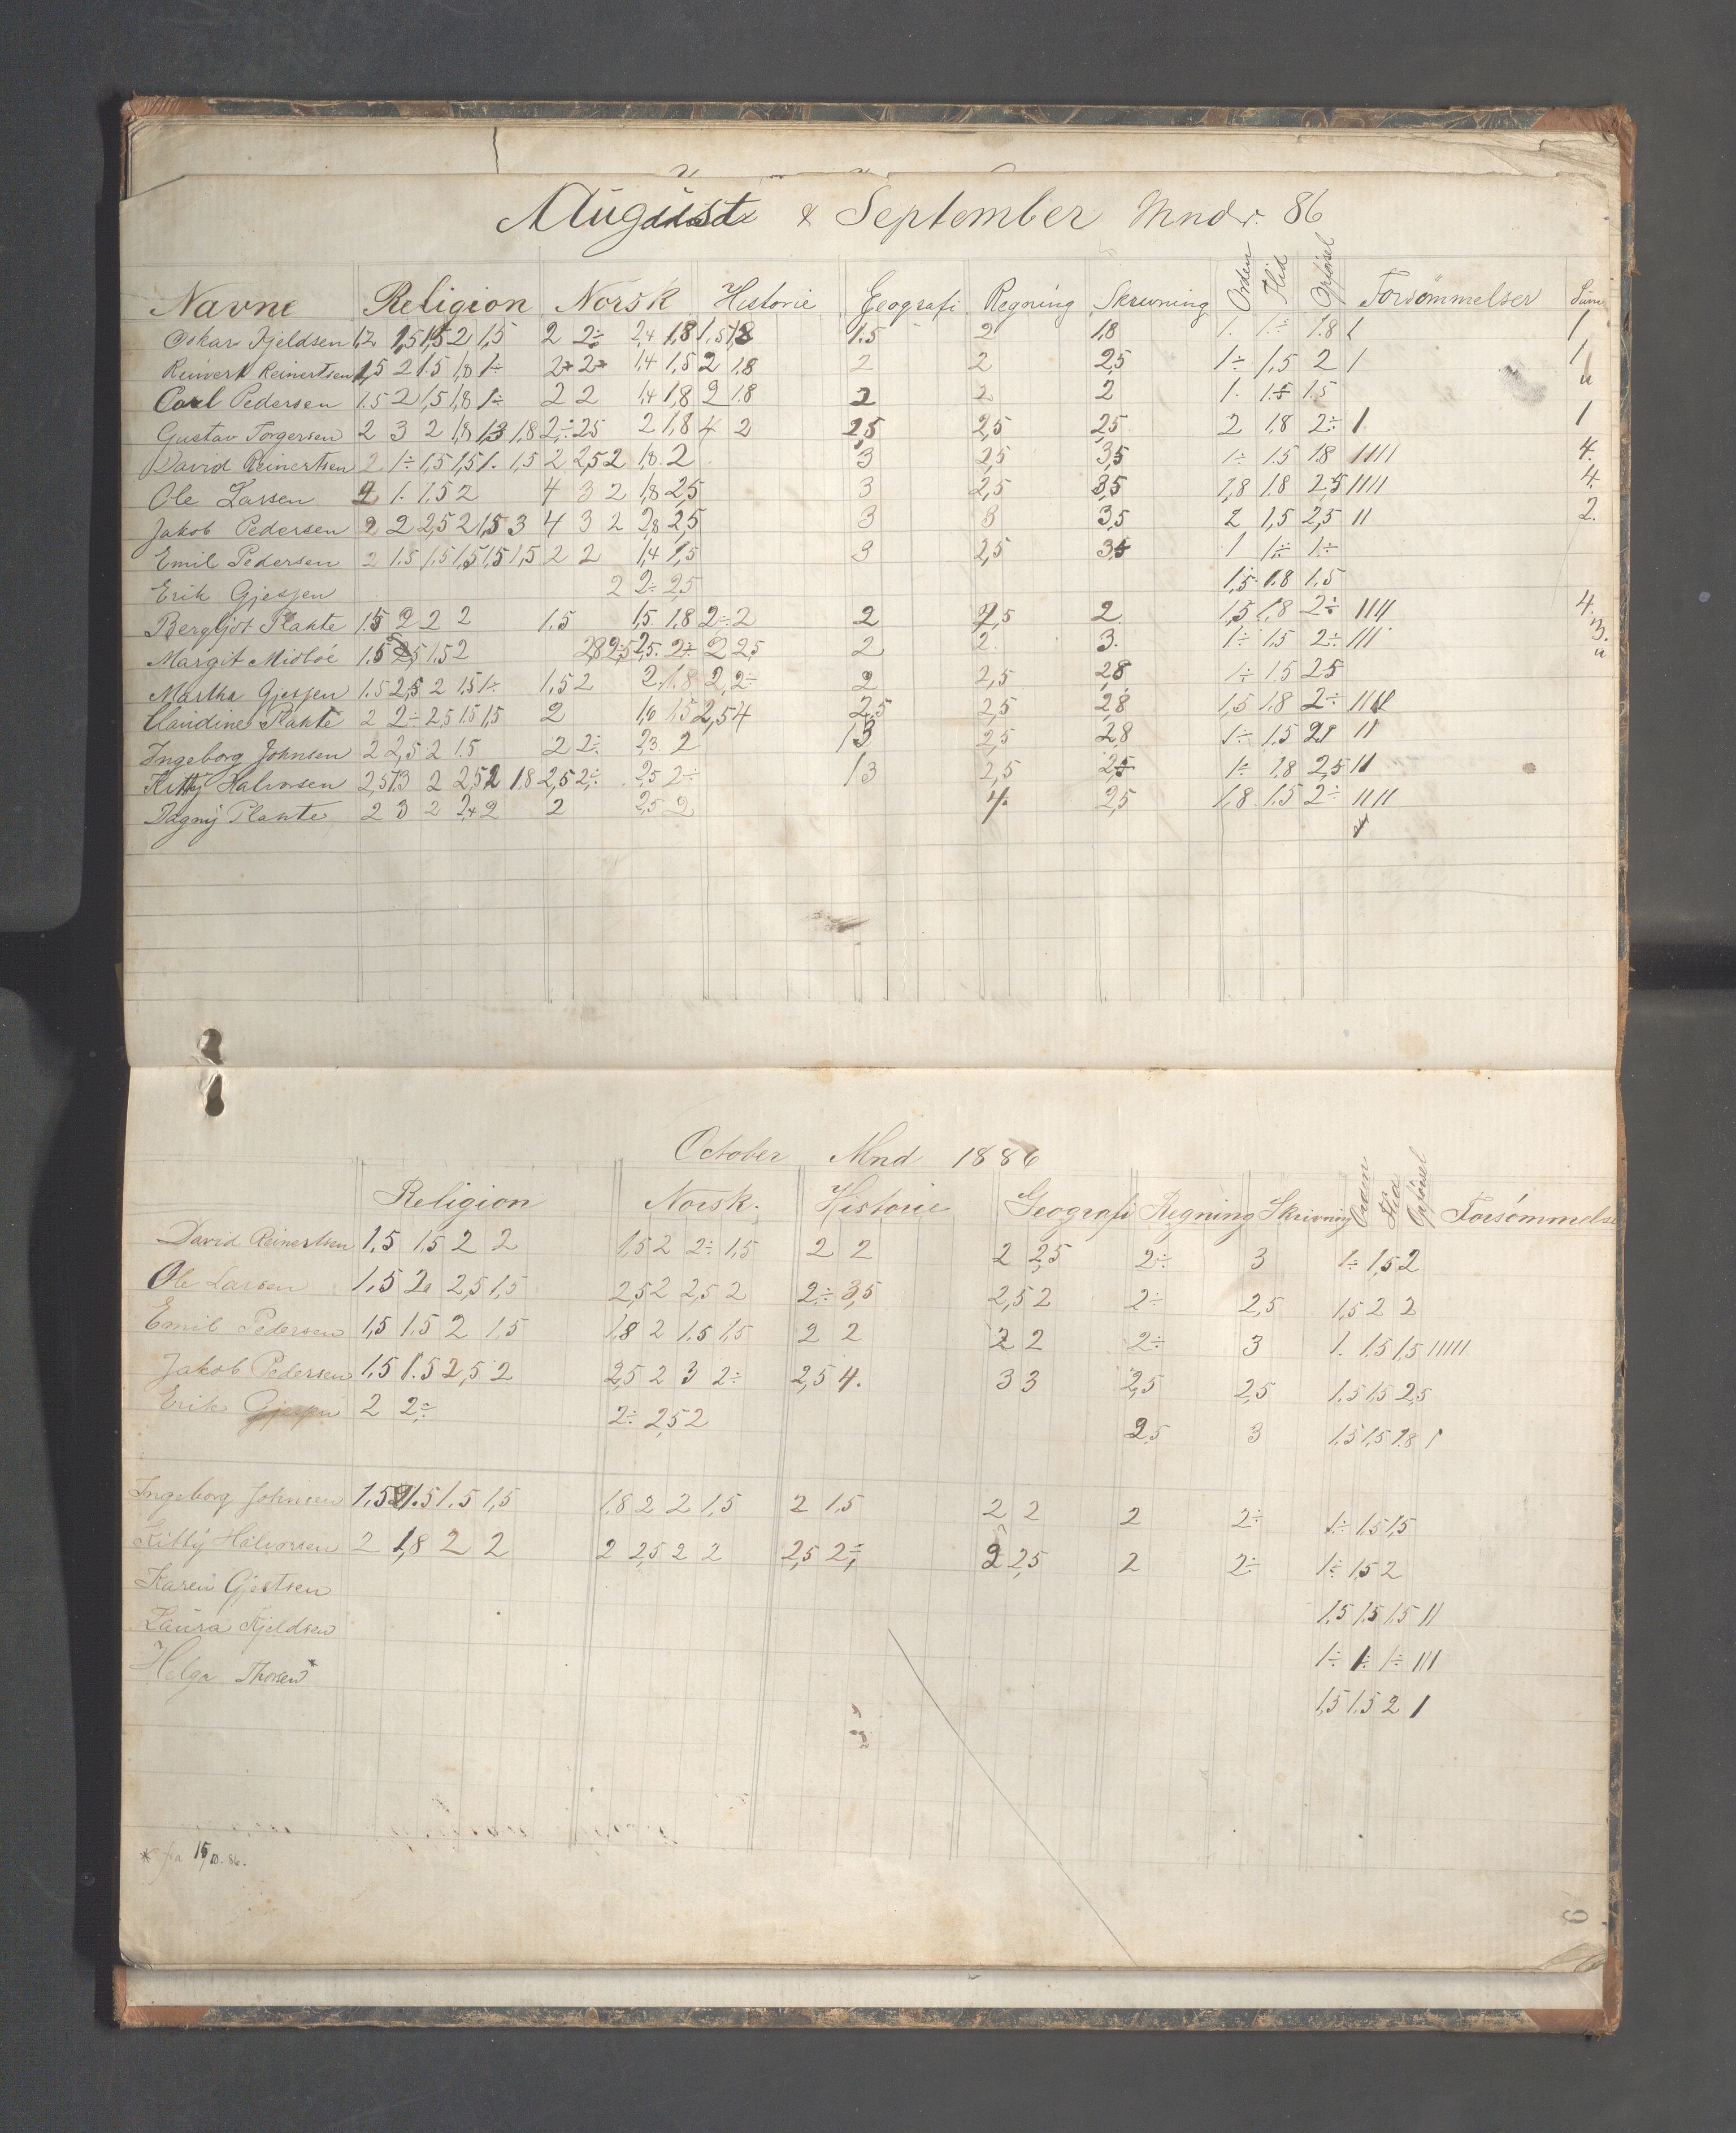 August & September Mndr. 86
Navne Religion Norsk Historie Geografi Regning Skrivning Orden Flid Opførsel Forsømmelser Sum
Oskar Kjeldsen 1,2 1,5 1,5 2 1,5 2 2÷ 2,4 1,8 1,5 1,8 1.5 2 1,8 1. 1.÷ 1.8 1 1
Reinert Reinertsen 1,5 2 1.5 1,8 1÷ 1,4 1,5 2 1.8 2 2 2,5 1÷ 1,5 2 1 1
Carl Pedersen 1.5 2 1,5 1,8 1÷ 2 2 1,4 1,8 2 1.8 2 2 2 1. 1.5 1.5 "
Gustav Torgersen 2 3 2 1,8 1,3 1,8 2,÷ 2,5 2 1,8 4 2 2,5 2,5 2,5 2 1,8 2÷ 1. 1
David Reinertsen 2 1÷ 1,5 1,5 1. 1,5 2 2,5 2 1,8. 2 3 2,5 3,5 1÷ 1.5 1.8 1111 4.
Ole Larsen 2 1. 1.5 2 4 3 2 1,8 2,5 3 2,5 3,5 1,8 1.8 2.5 1111 4.
Jakob Pedersen 2 2 2,5 2 1,5 3 4 3 2 2,8 2,5 3 3 3,5 2 1,5 2,5 11 2.
Emil Pedersen 2 1.5 1,5 1,5 1,5 1,5 2 2 1,4 1,5 3 2,5 3,5 1 1÷ 1÷
Erik Gjessen 2 2÷ 2,5 1,5 1.8 1,5
Bergljot Plahte 1.5 2 2 2 1.5 1,5. 1.8 2÷ 2 2 2 1,5 1,8 2÷ 1111 4.
Margit Midbøe 1.5 2,5 1.5 2 2,8 2,5 2,5. 2÷ 2 2,5 2 2. 3. 1÷ 1.5 2÷ 111 3.
Martha Gjessen 1.5 2,5 2 1,5 1÷ 1,5 2 2. 1.8 2,2÷ 2 2,5 2,8 1÷ 1.5 2,5 "
Claudine Plahte 2 2÷ 2,5 1.5 1,5 2 1,6 1.5 2,5 4 2,5 2,5 2,8 1,5 1.8 2÷ 1111
Ingeborg Johnsen 2 2,5 2 1.5 2 2÷ 2,3. 2 3 2,5 2,8 1÷ 1.5 11
Kitty Halvorsen 2 2,5 2 1,8 2,5 2,÷ 2,5 2÷ 3 2,5 2,5 1÷ 1,8 2,5 11
Dagny Plahte 2 3 2 2,4 2 2 2,5 2 4. 2,5 1,8. 1.5 2÷ 1111
October Mnd 1886
Religion Norsk. Historie Geografi Regning Skrivning Orden Flid Opførsel Forsømmelse
David Reinertsen 1,5 1,5 2 2 1,5 2 2÷ 1,5 2 2 2 2,5 2÷ 3 1÷ 1,5 2
Ole Larsen 1,5 2 2,5 1,5 2,5 2 2,5 2 2÷ 3,5 2,5 2 2÷ 2,5 1,5 2 2
Emil Pedersen 1,5 1.5 2 1,5 1,8 2 1.5 1,5 2 2 2 2 2÷ 3 1. 1.5 1,5 11111
Jakob Pedersen 1,5 1.5 2,5 2 2,5 2 3 2÷ 2,5 4. 3 3 2,5 2,5 1.5 1,5 2,5
Erik Gjessen 2 2÷ 2÷ 2,5 2 2,5 3 1.5 1,5 1.8 1
Ingeborg Johnsen 1,5 1.5 1.5 1,5 1,8 2 2 1,5 2 1,5 2 2 2 2÷ 1÷ 1.5 1,5
Kitty Halvorsen 2 1,8 2 2 2 2,5 2 2 2,5 2÷ 2 2,5 2 2÷ 1÷ 1,5 2
Karen Gjertsen 1.5 1.5 1,5 11
Laura Kjeldsen 1÷ 1÷ 1÷ 111
Helga Thorsen* 1,5 1.5 2 1
* fra 15/10. 86.
6